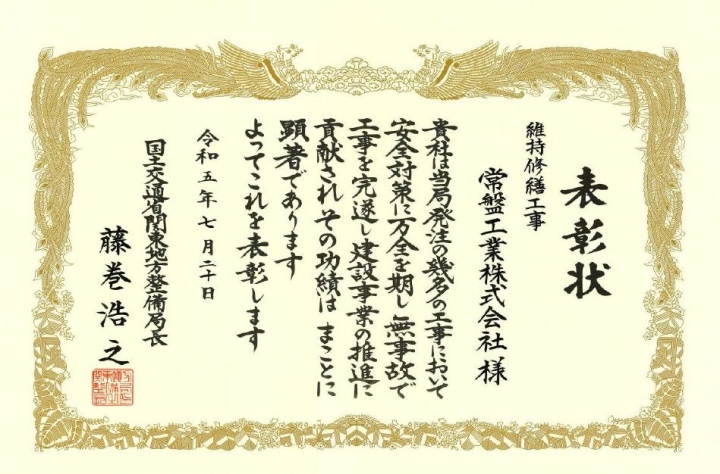 表彰状
維持修繕工事
常盤工業株式会社 様
貴社は当局発注の幾多の工事において
安全対策に万全を期し無事故で
工事を完遂し建設事業の推進に
貢献されその功績は まことに
顕著であります
よってこれを表彰します
令和五年七月二十日
国土交通省関東地方整備局長
藤巻浩之